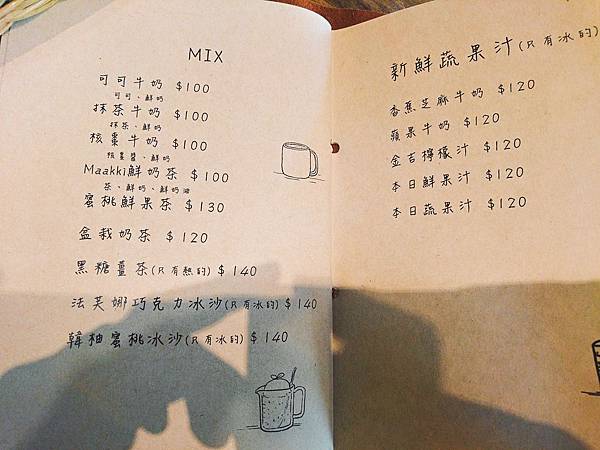 MIX
可可牛奶 $100
可可、鮮奶
抹茶牛奶 $100
抹茶、鮮奶
核棗牛奶 $100
核棗醬、鮮奶
Maakki鮮奶茶 $100
茶、鮮奶、鮮奶油
蜜桃鮮果茶 $130
盆栽奶茶 $120
黑糖薑茶(只有熱的) $140
法芙娜巧克力冰沙(只有冰的) $140
韓柚蜜桃冰沙(只有冰的) $140
新鮮蔬果汁(只有冰的)
香蕉芝麻牛奶 $120
蘋果牛奶 $120
金吉檸檬汁 $120
本日鮮果汁 $120
本日蔬果汁 $120